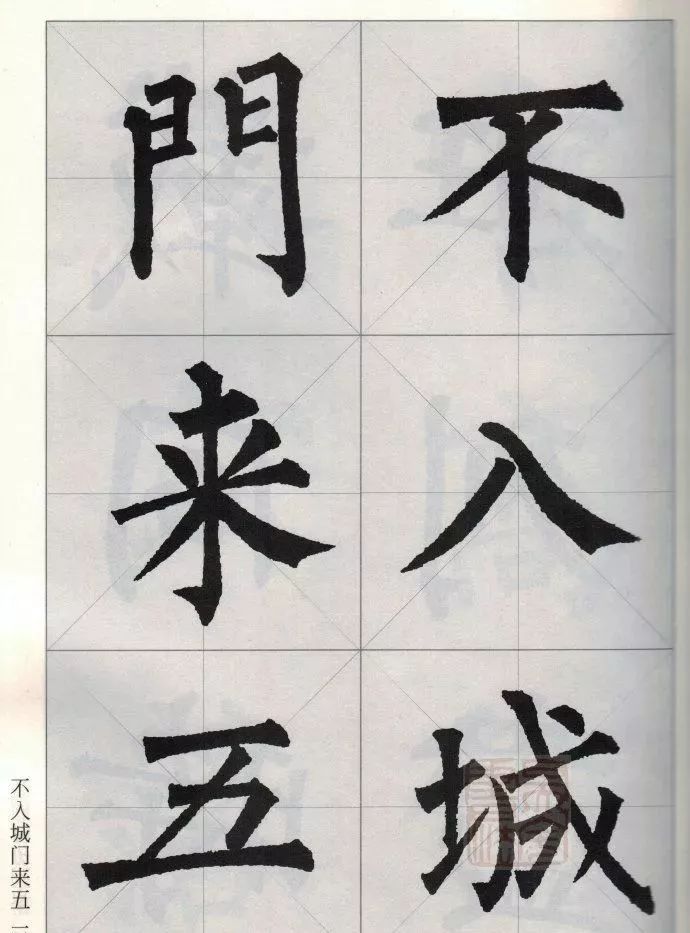 不入城
門来五
不入城门来五一